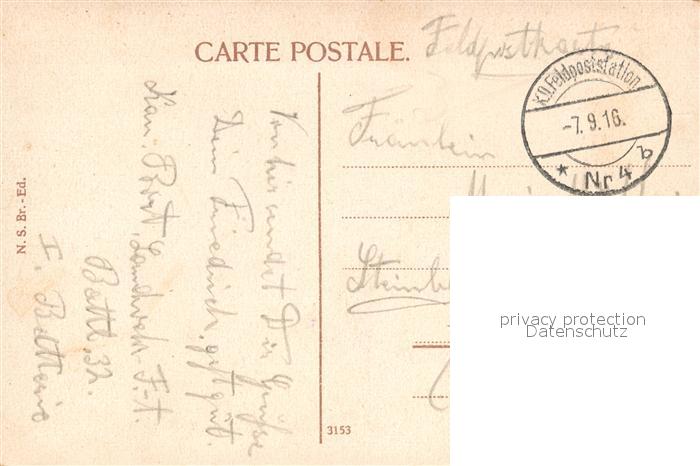 CARTE POSTALE.
Feldpostkarte
K.D.Feldpoststation
-7.9.16.
* Nr 4 a
Fräulein
Von hier sendet Dir Grüße
Dein Friedrich, geht gut.
Kan. Landwehr
Battl. 32.
I. Batterie
N. S. Br.-Ed.
3153
privacy protection
Datenschutz